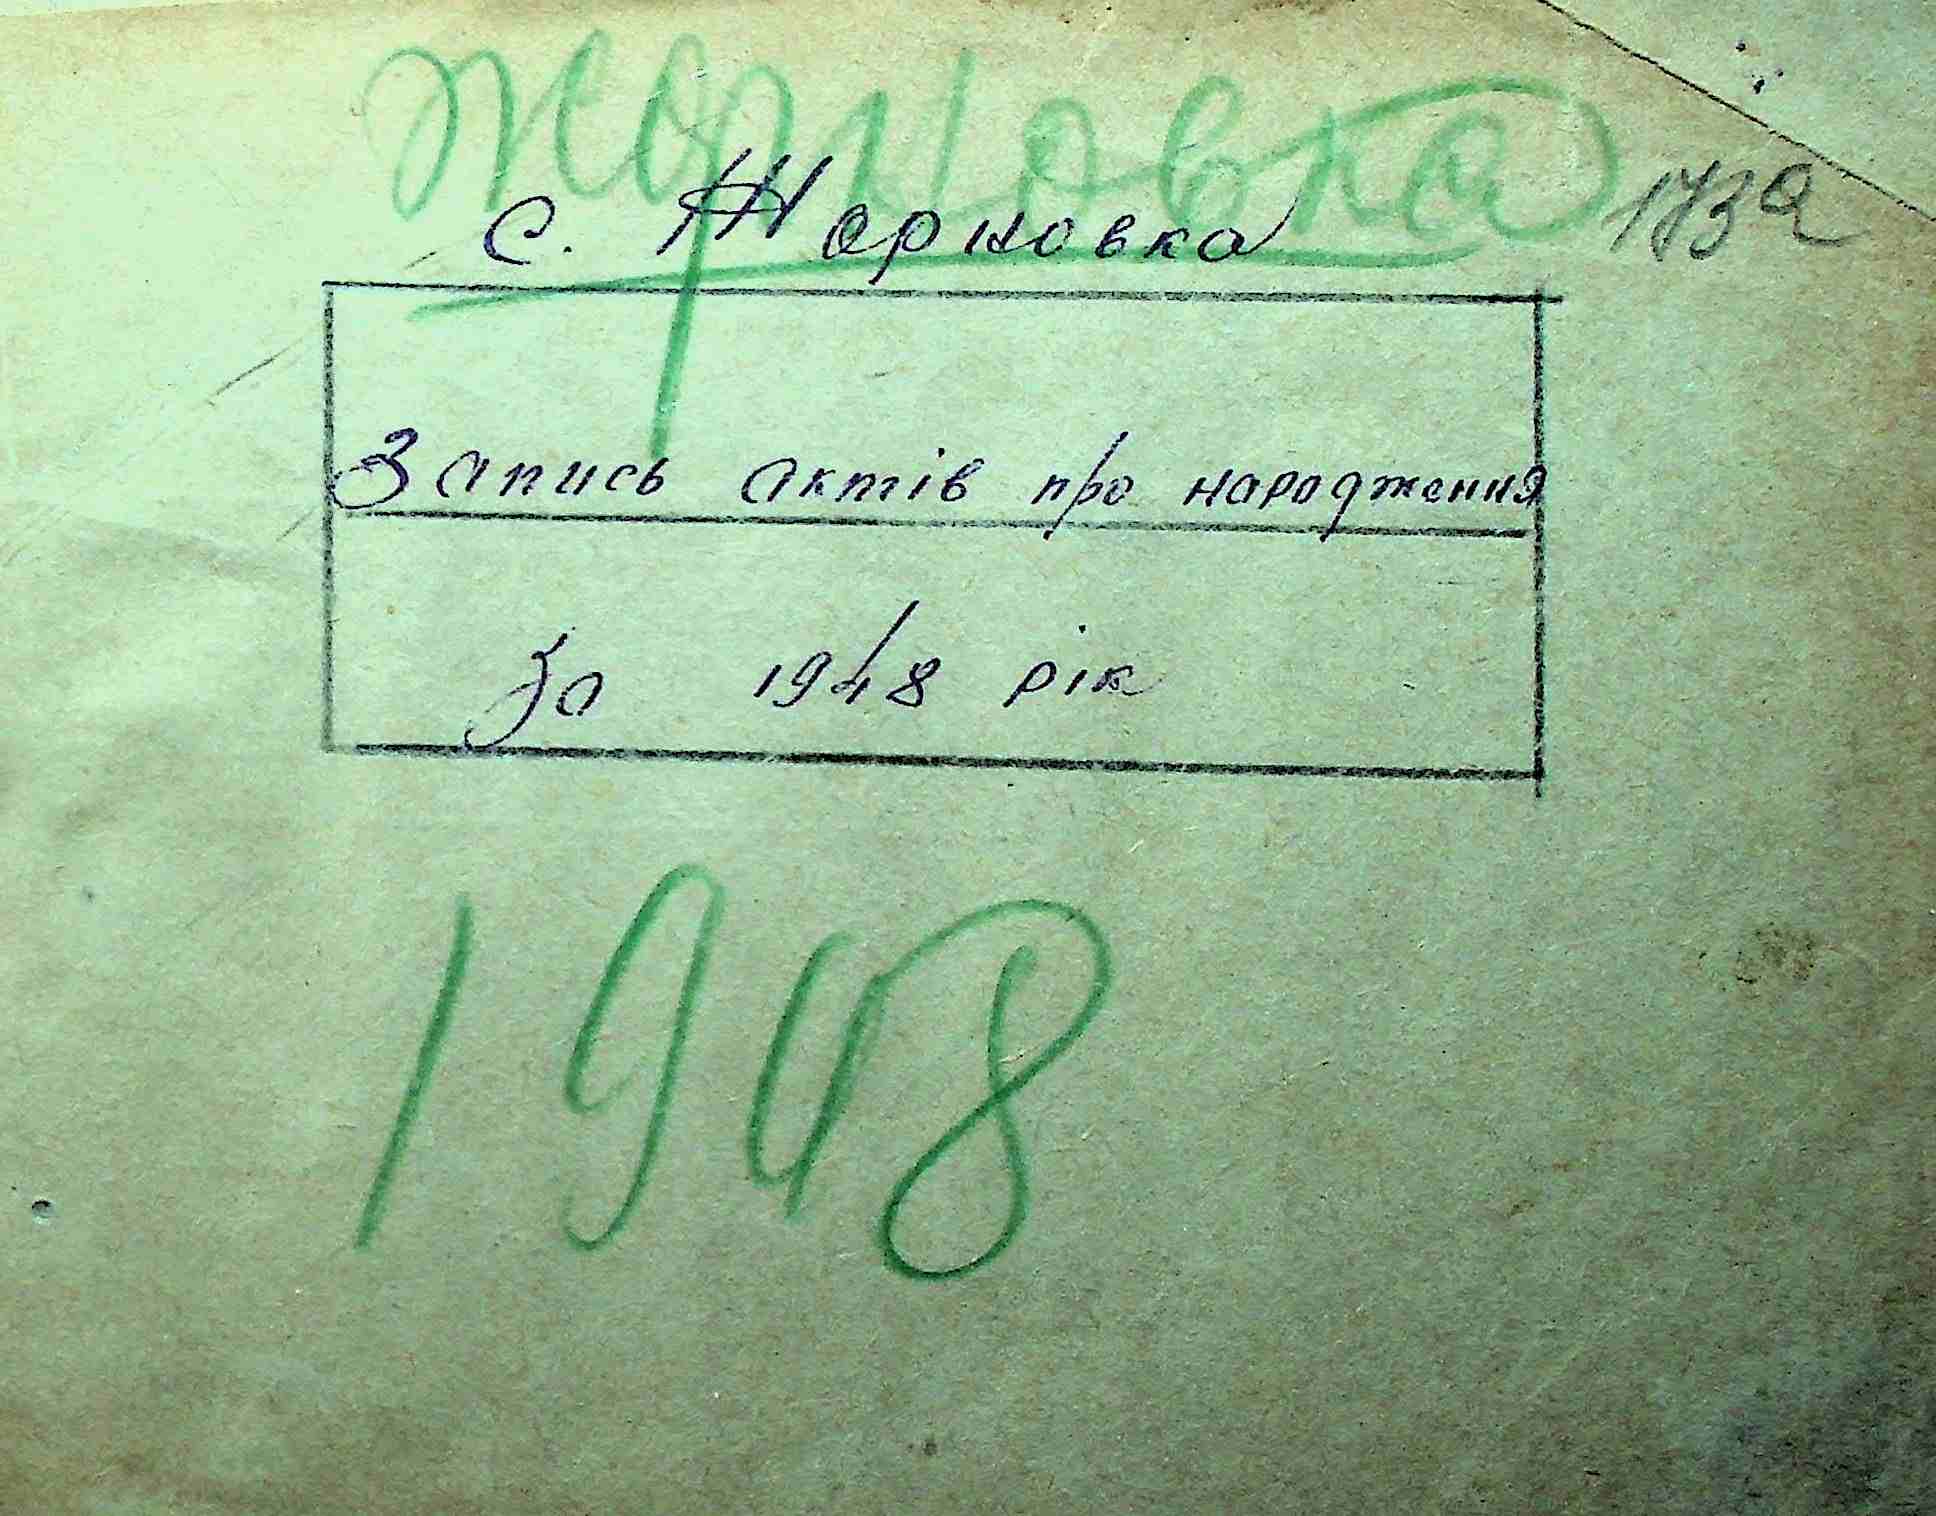 Жорновка
с. Жорновка
173а
Запись актів про народження
За 1948 рік
1948